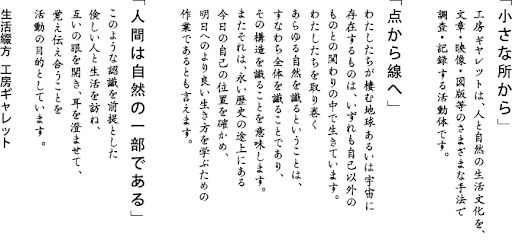 「小さな所から」
工房ギャレットは、人と自然の生活文化を、
文章・映像・図版等のさまざまな手法で
調査・記録する活動体です。
「点から線へ」
わたしたちが棲む地球あるいは宇宙に
存在するものは、いずれも自己以外の
ものとの関わりの中で生きています。
わたしたちを取り巻く
あらゆる自然を識るということは、
すなわち全体を識ることであり、
その構造を識ることを意味します。
またそれは、永い歴史の途上にある
今日の自己の位置を確かめ、
明日へのより良い生き方を学ぶための
作業であるとも言えます。
「人間は自然の一部である」
このような認識を前提とした
優しい人と生活を訪ね、
互いの眼を開き、耳を澄ませて、
覚え伝え合うことを
活動の目的としています。
生活綴方 工房ギャレット